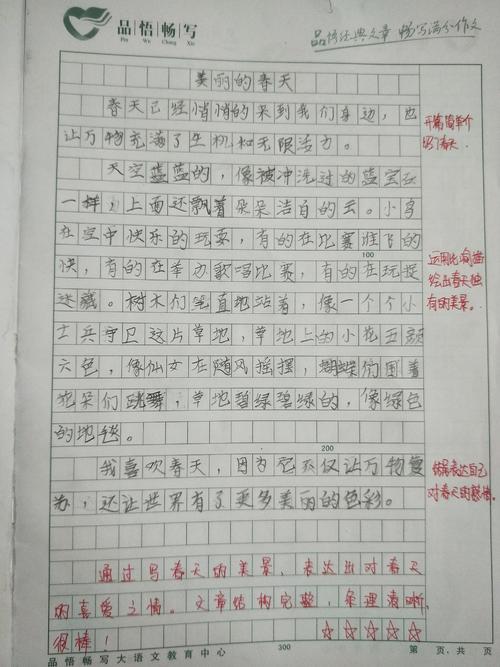 品悟畅写
Pin Wu Chang Xie
品悟经典文章 畅写满分作文
美丽的春天
春天已经悄悄的来到我们身边，也
让万物充满了生机和无限活力。
开篇简单介
绍了春天。
天空蓝蓝的，像被冲洗过的蓝宝石
一样，上面还飘着朵朵洁白的云。小鸟
在空中快乐的玩耍，有的在比赛谁飞的
100
快，有的在举办歌唱比赛，有的在玩捉
迷藏。树木们笔直地站着，像一个个小
士兵守卫这片草地，草地上的小花五颜
六色，像仙女在随风摇摆，蝴蝶们围着
花朵们跳舞，草地碧绿碧绿的，像绿色
的地毯。
运用比喻描
绘出春天独
有的美景。
200
我喜欢春天，因为它不仅让万物复
苏，还让世界有了更多美丽的色彩。
结尾表达自己
对春天的感情。
通过写春天的美景，表达出对春天
的喜爱之情。文章结构完整，条理清晰，
很棒！
品悟畅写大语文教育中心
300
第 页，共 页